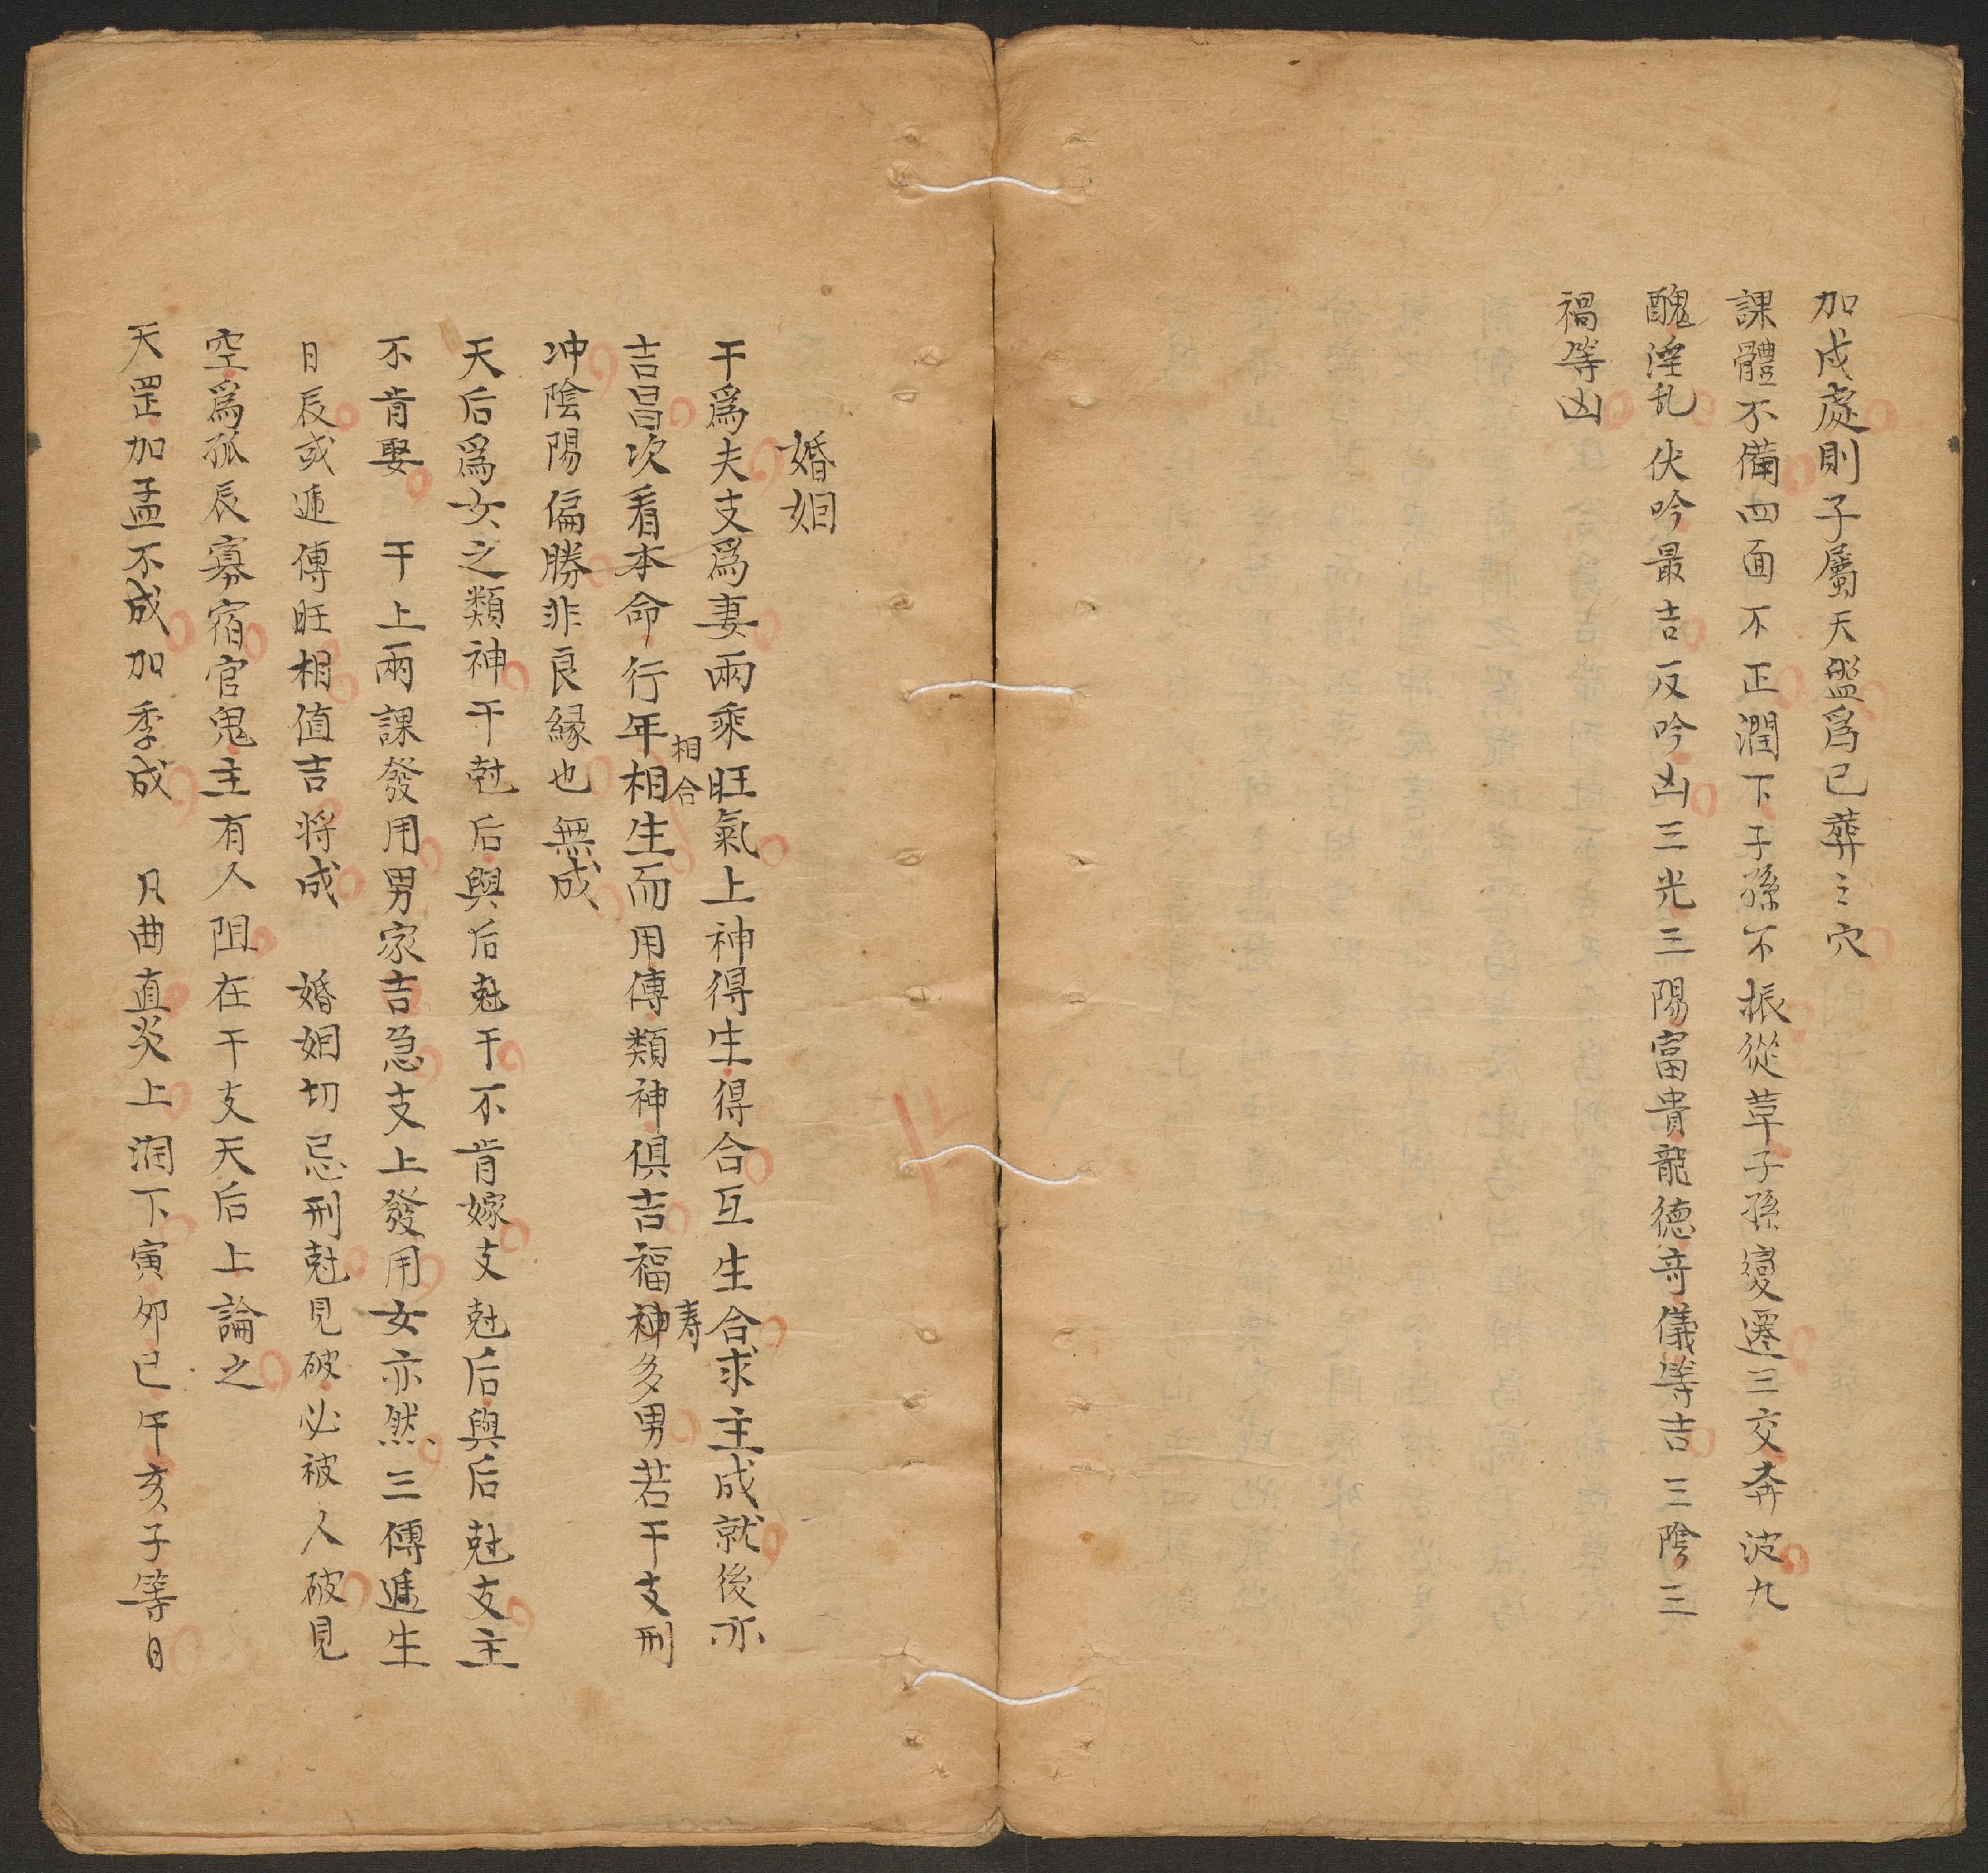 加戍處則子屬天盤爲已葬之穴
課體不備四面不正潤下子孫不振從草子孫變遷三交奔波九
醜淫乱伏吟最吉反吟凶三光三陽富貴龍德奇儀等吉三陰三
禍等凶
婚姻
干爲夫支爲妻兩乘旺氣上神得生得合互生合求主成就後亦
吉昌次看本命行年相生相合而用傳類神俱吉福壽神多男若干支刑
冲陰陽偏勝非良緣也無成
天后爲女之類神干尅后與后尅干不肯嫁支尅后與后尅支主
不肯娶 干上兩課發用男家吉急支上發用女亦然三傳遞生
日辰或逓傳旺相值吉将成 婚姻切忌刑尅見破必被人破見
空爲孤辰寡宿官鬼主有人阻在干支天后上論之
天罡加孟不成加季成 凡曲直炎上润下寅夘巳午亥子等日